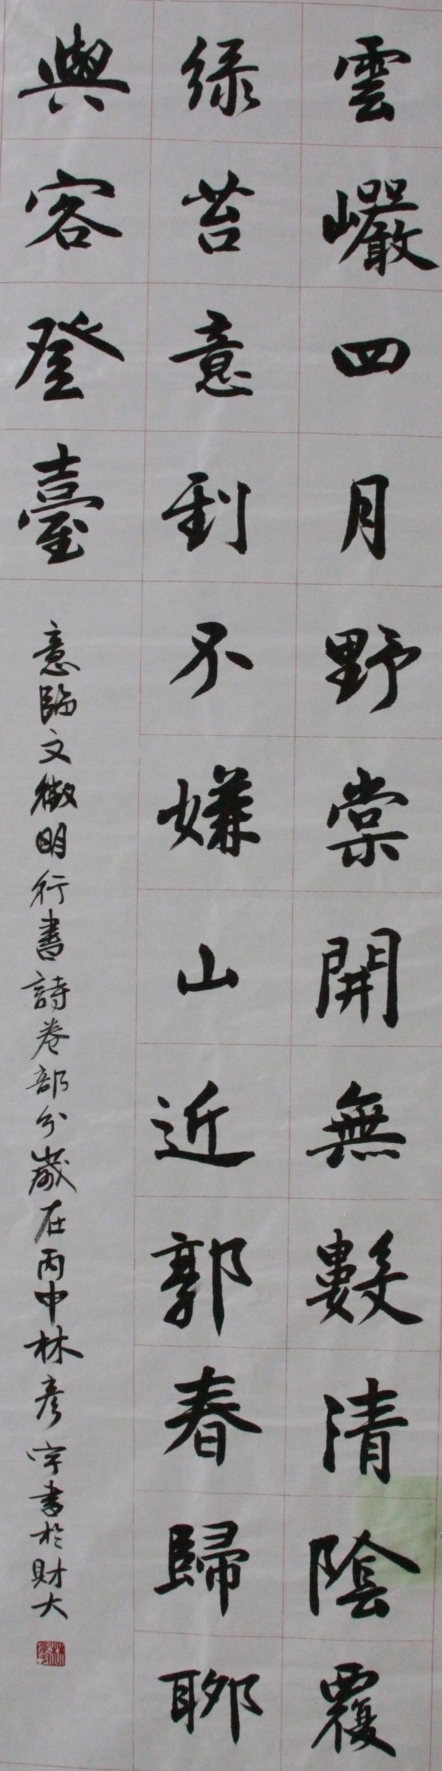 雲巖四月野棠開無數清陰覆
緑苔意到不嫌山近郭春歸聊
與客登臺
意臨文徵明行書詩卷部分歲在丙申林彥宇書於財大